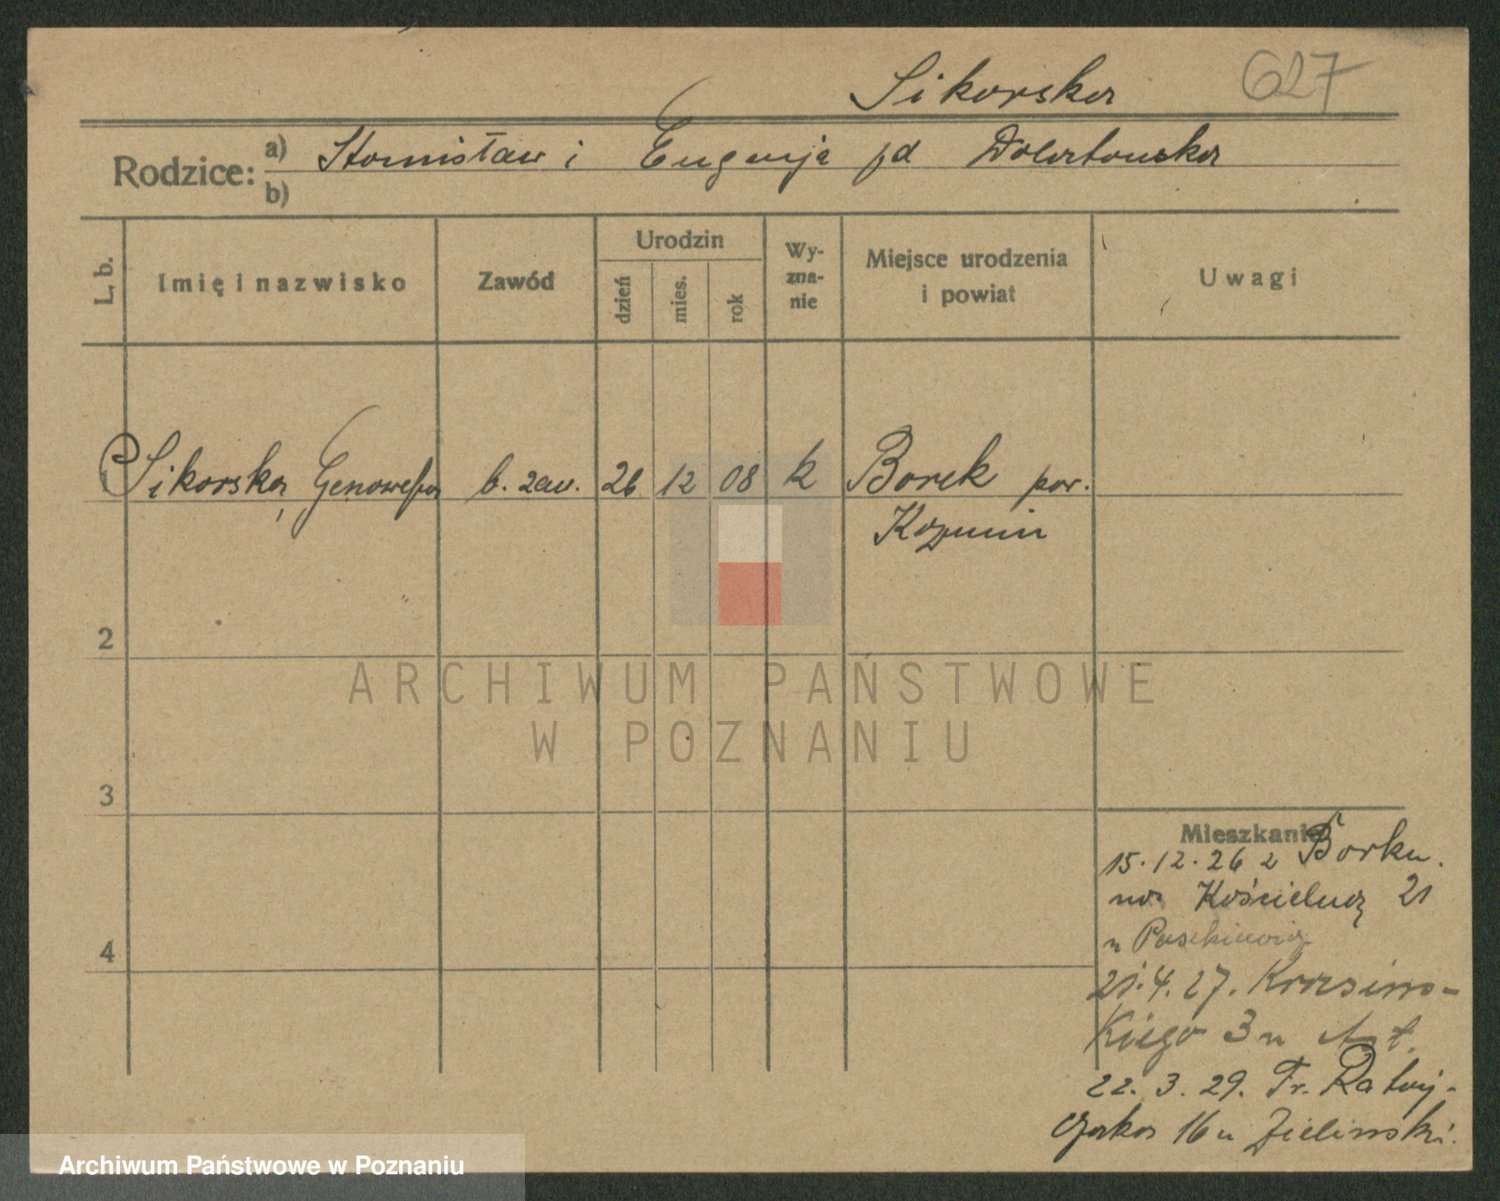 Sikorska 627
Rodzice: a) Stanisław i Eugenja pd
b)
L. b. Imię i nazwisko Zawód Urodzin dzień mies. rok Wyznanie Miejsce urodzenia i powiat Uwagi
1 Sikorska, Genowefa b. zaw. 26 12 08 k Borek pow.
Koźmin
2
3
4
Mieszkanie
15.12.26 z Borku.
na Kościelną 21
u
21.4.27. Krasiń-
kiego 3 u
22.3.29. Fr. Rataj-
czaka 16 u Zielinski.
ARCHIWUM PAŃSTWOWE
W POZNANIU
Archiwum Państwowe w Poznaniu